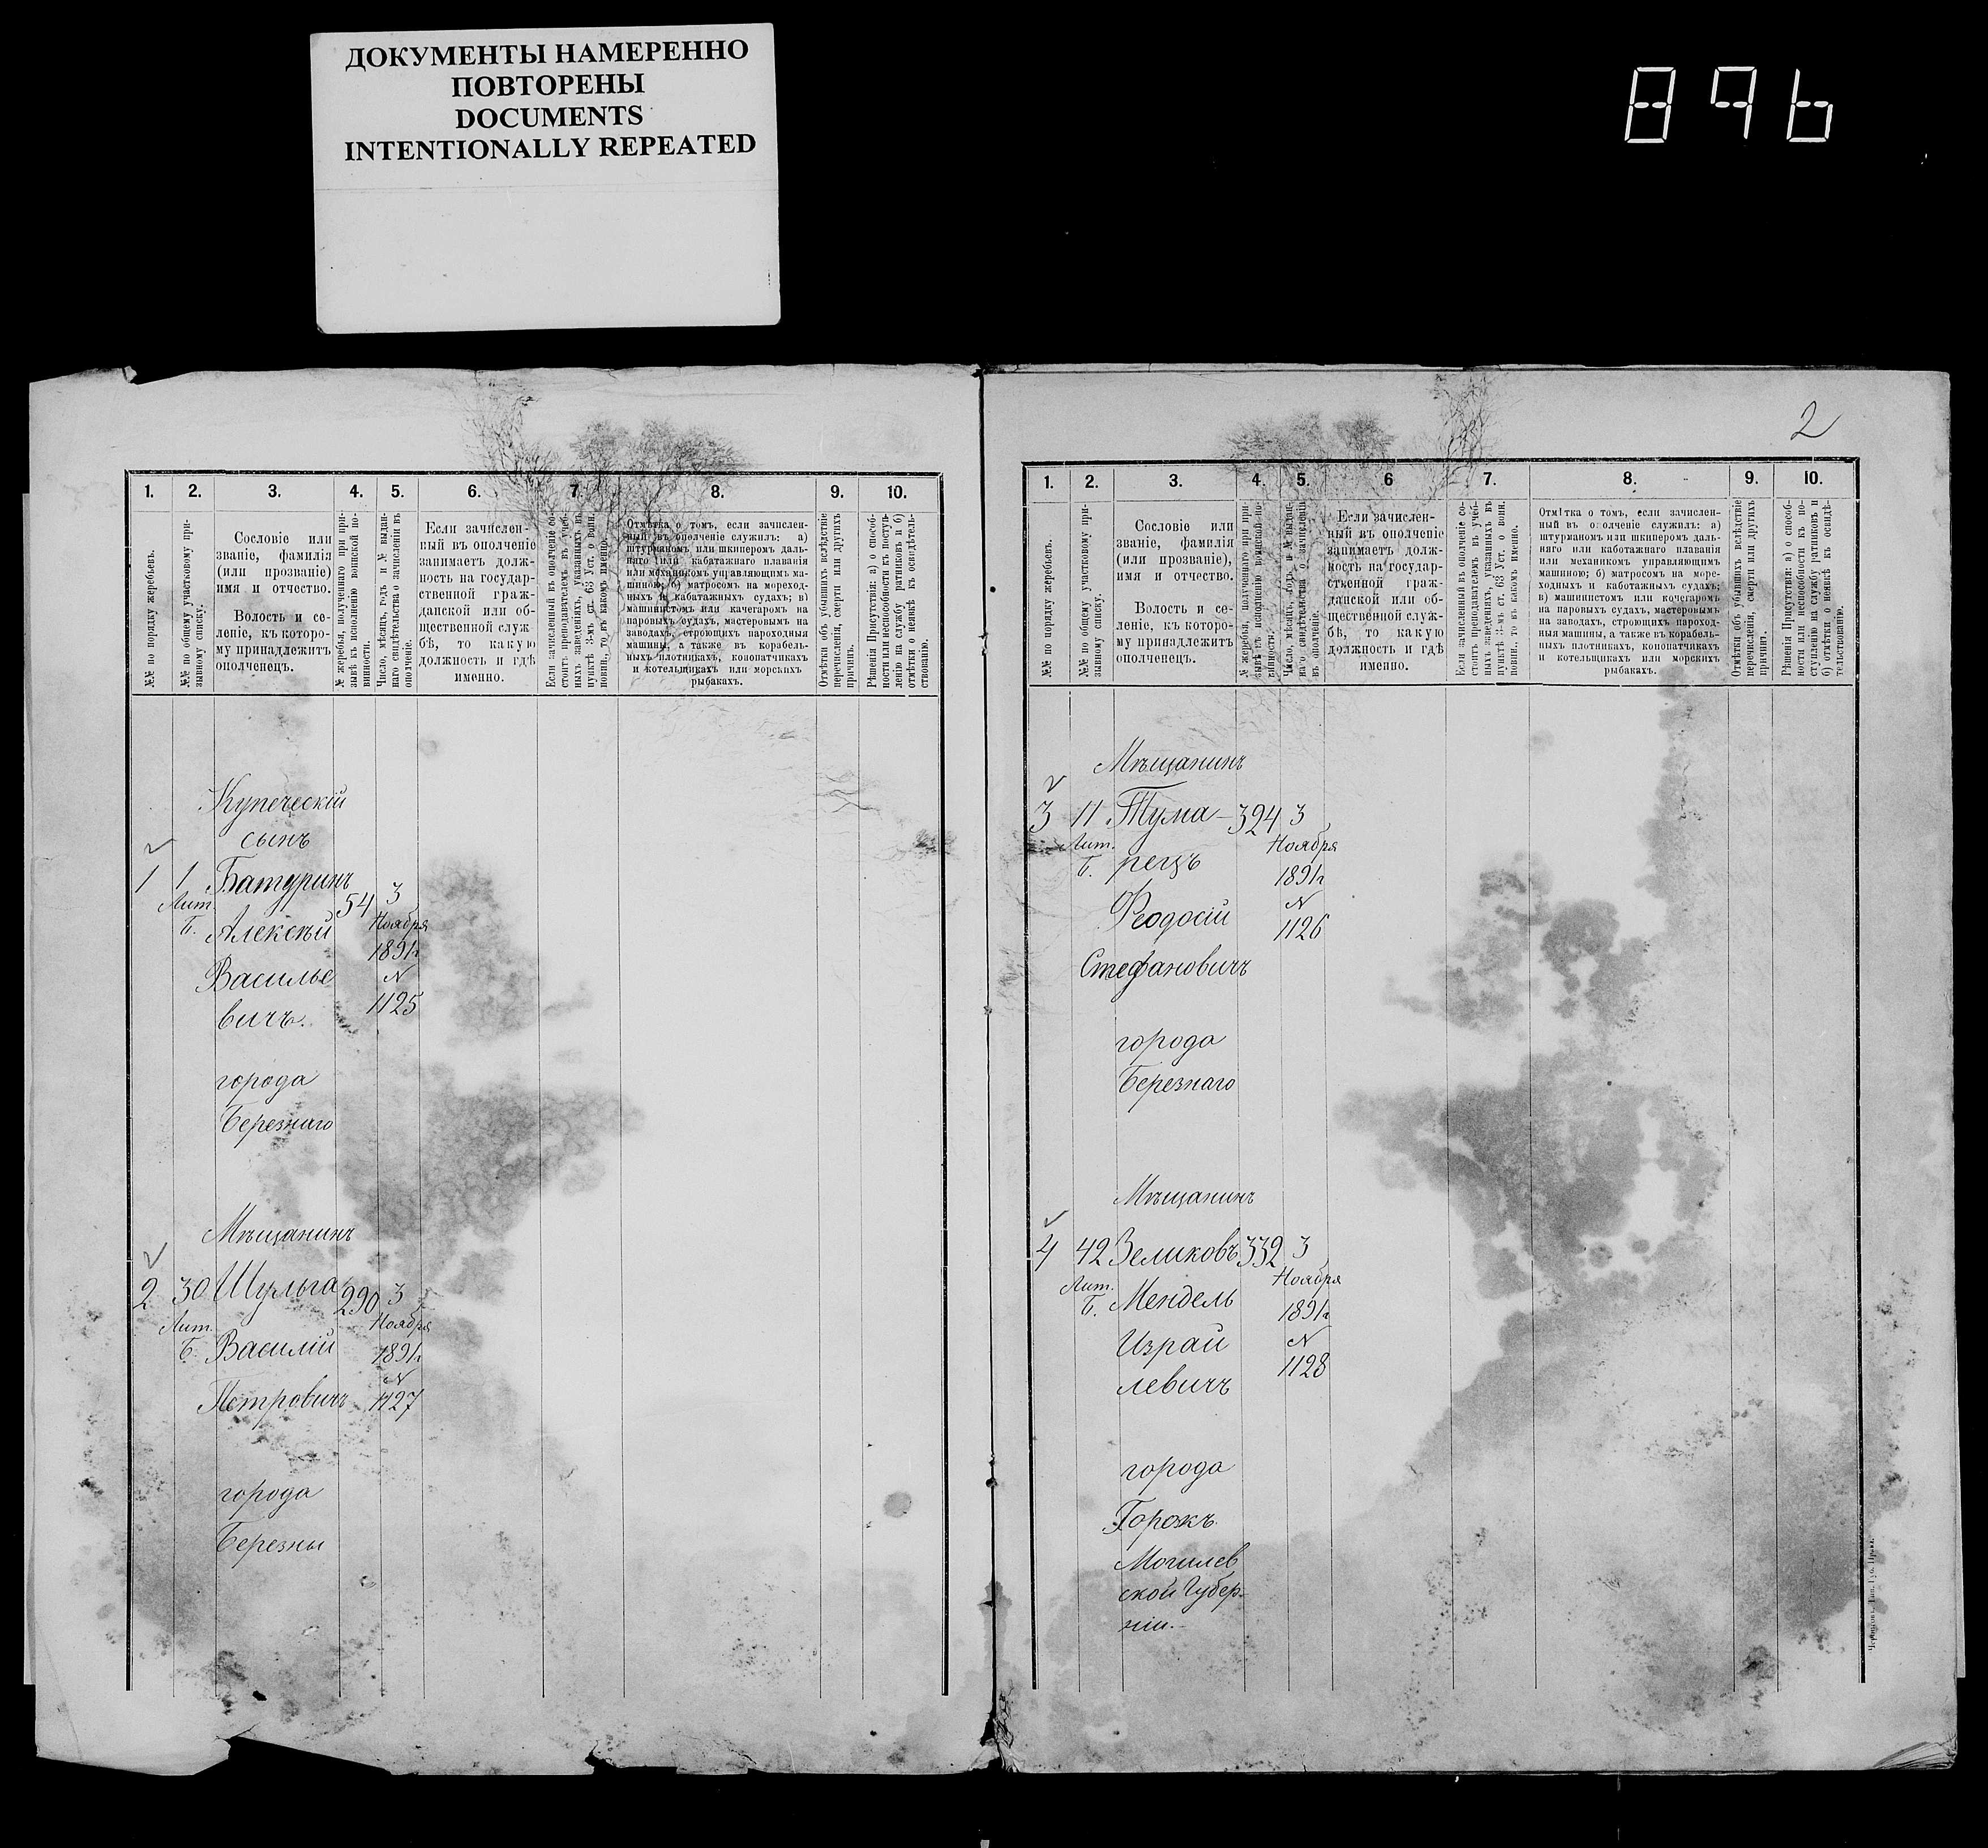 ДОКУМЕНТЫ НАМЕРЕННО
ПОВТОРЕНЫ
DOCUMENTS
INTENTIONALLY REPEATED
896
1.
2.
3.
4.
5.
6.
7.
8.
9.
10.
№№ по порядку жеребьевъ.
№№ по общему участковому при-
зывному списку.
Сословіе или
званіе, фамилія
(или прозваніе)
имя и отчество.
Волость и се-
леніе, къ которо-
му принадлежитъ
ополченецъ.
№ жеребья, полученнаго при при-
зывѣ къ исполненію воинской по-
винности.
Число, мѣсяцъ, годъ и № выдан-
наго свидѣтельства о зачисленіи въ
ополченіе.
Если зачислен-
ный въ ополченіе
занимаетъ долж-
ность на государ-
ственной граж-
данской или об-
щественной служ-
бѣ, то какую
должность и гдѣ
именно.
Если зачисленный въ ополченіе со-
стоитъ преподавателемъ въ учеб-
ныхъ заведеніяхъ, указанныхъ въ
пунктѣ 3-мъ ст. 63 Уст. о воин.
повин., то въ какомъ именно.
Отмѣтка о томъ, если зачислен-
ный въ ополченіе служилъ: а)
штурманомъ или шкиперомъ даль-
няго или кабатажнаго плаванія
или механикомъ управляющимъ ма-
шиною; б) матросомъ на мореход-
ныхъ и кабатажныхъ судахъ; в)
машинистомъ или качегаромъ на
паровыхъ судахъ, мастеровымъ на
заводахъ, строющихъ пароходныя
машины, а также въ корабель-
ныхъ плотникахъ, конопатчикахъ
и котельщикахъ или морскихъ
рыбакахъ.
Отмѣтки объ убывшихъ вслѣдствіе
перечисленія, смерти или другихъ
причинъ.
Рѣшенія Присутствія: а) о способ-
ности или неспособности къ поступ-
ленію на службу ратниковъ и б)
отмѣтки о неявкѣ къ освидѣтель-
ствованію.
Купеческій
сынъ
1 1 Батуринъ
Лит.
Б.
54 3
Ноября
Алексѣй
1891г
Василье
N
вичъ.
1125
города
Березнаго
Мѣщанинъ
2 30 Шульга 290 3
Лит.
Б.
Ноября
Василій
1891г
N
Петровичъ 1127
города
Березны
2
1.
2.
3.
4.
5.
6
7.
8.
9.
10.
№№ по порядку жеребьевъ.
№№ по общему участковому при-
зывному списку.
Сословіе или
званіе, фамилія
(или прозваніе),
имя и отчество.
Волость и се-
леніе, къ которо-
му принадлежитъ
ополченецъ.
№ жеребья, полученнаго при при-
зывѣ къ исполненію воинской по-
винности.
Число, мѣсяцъ, годъ и № выдан-
наго свидѣтельства о зачисленіи
въ ополченіе.
Если зачислен-
ный въ ополченіе
занимаетъ долж-
ность на государ-
ственной граж-
данской или об-
щественной служ-
бѣ, то какую
должность и гдѣ
именно.
Если зачисленный въ ополченіе со-
стоитъ преподавателемъ въ учеб-
ныхъ заведеніяхъ, указанныхъ въ
пунктѣ 3-мъ ст. 63 Уст. о воин.
повин., то въ какомъ именно.
Отмѣтка о томъ, если зачислен-
ный въ ополченіе служилъ: а)
штурманомъ или шкиперомъ даль-
няго или каботажнаго плаванія
или механикомъ управляющимъ
машиною; б) матросомъ на море-
ходныхъ и каботажныхъ судахъ;
в) машинистомъ или кочегаромъ
на паровыхъ судахъ, мастеровымъ
на заводахъ, строющихъ пароход-
ныя машины, а также въ корабель-
ныхъ плотникахъ, конопатчикахъ
и котельщикахъ или морскихъ
рыбакахъ.
Отмѣтки объ убывшихъ вслѣдствіе
перечисленія, смерти или другихъ
причинъ.
Рѣшенія Присутствія: а) о способ-
ности или неспособности къ по-
ступленію на службу ратниковъ и
б) отмѣтки о неявкѣ къ освидѣ-
тельствованію.
Мѣщанинъ
3 11 Тума- 324 3
Лит.
Б.
Ноября
рецъ
1891г
N
Феодосій
1126
Стефановичъ
города
Березнаго
Мѣщанинъ
4 42 Зеликовъ 332 3
Лит.
Б.
Ноября
Мендель
1891г
Израи
N
левичъ
1128
города
Горокъ
Могилев
ской Губер-
ніи.
Черниговъ. Тип. Губ. Правл.